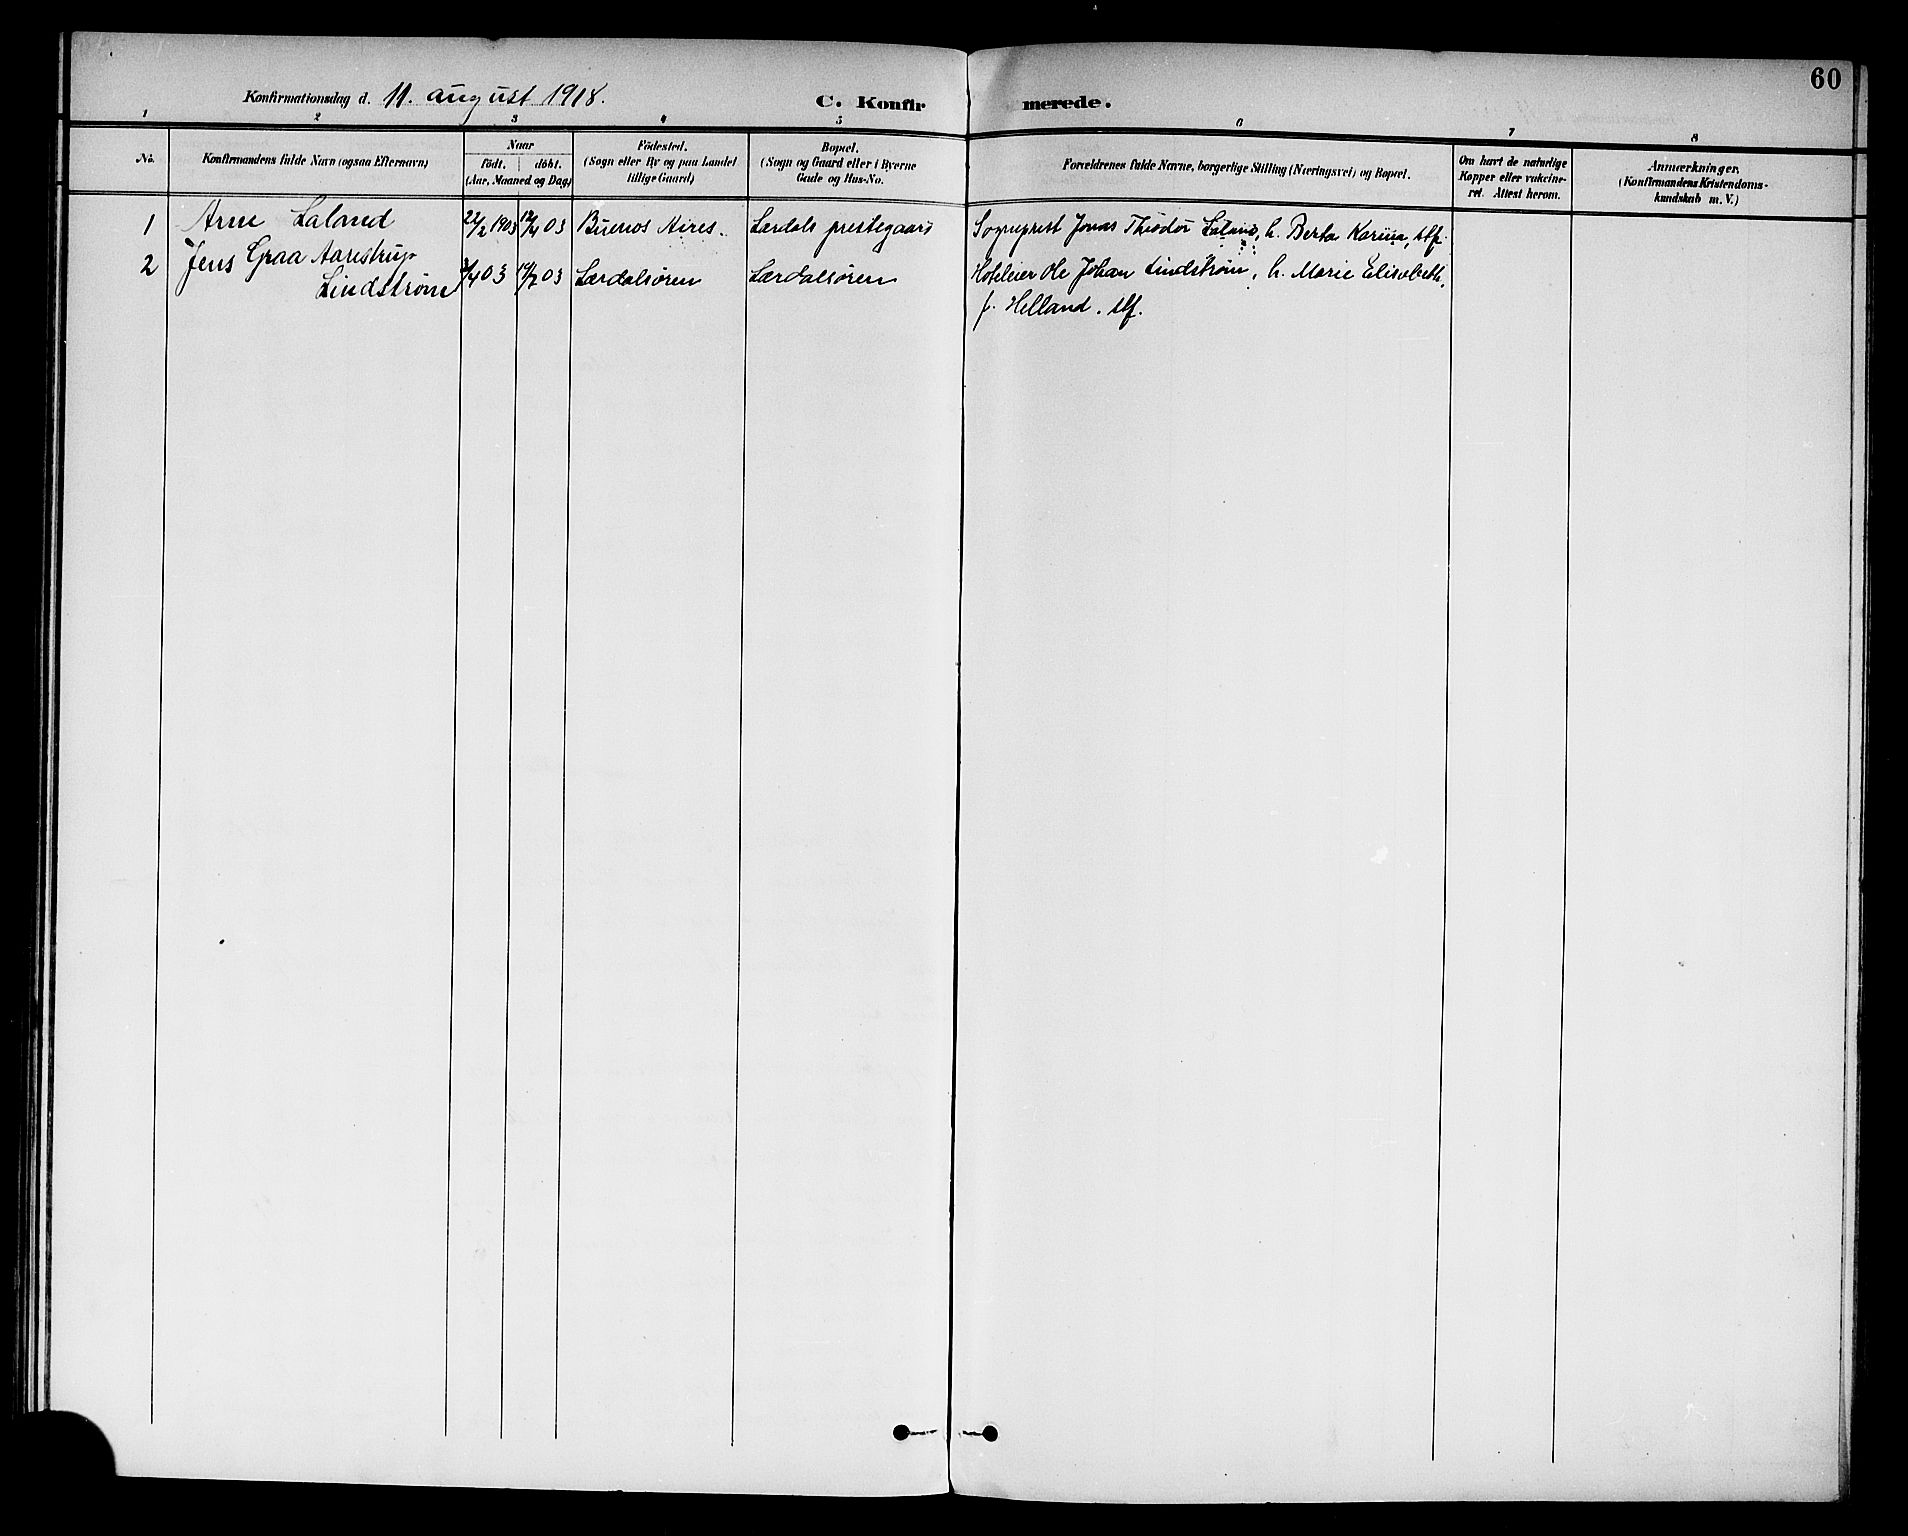 60
Konfirmationsdag d. 11. august 1918.
C. Konfirmerede.
1 2 3 4 5 6 7 8
No.
Konfirmandens fulde Navn (ogsaa Efternavn)
Naar
født. døbt.
(Aar, Maaned og Dag)
Födested.
(Sogn eller By og paa Landet
tillige Gaard)
Bopæl.
(Sogn og Gaard eller i Byerne
Gade og Hus-No.
Forældrenes fulde Navne, borgerlige Stilling (Næringsvei) og Bopæl.
Om havt de naturlige
Kopper eller vakcine-
ret. Attest herom.
Anmærkninger.
(Konfirmandens Kristendoms-
kundskab m. V.)
1 Arne Laland 22/2 1903 12/4 03 Buenos Aires. Lærdals prestegaard Sogneprest Jonas Theodor Laland, h. Berta Karina, stf.
2 Jens Graa Aarestrup
Lindstrøm /4 03 /7 03 Lærdalsøren Lærdalsøren Hoteleier Ole Johan Lindstrøm, h. Marie Elisabeth,
f. Helland. stf.